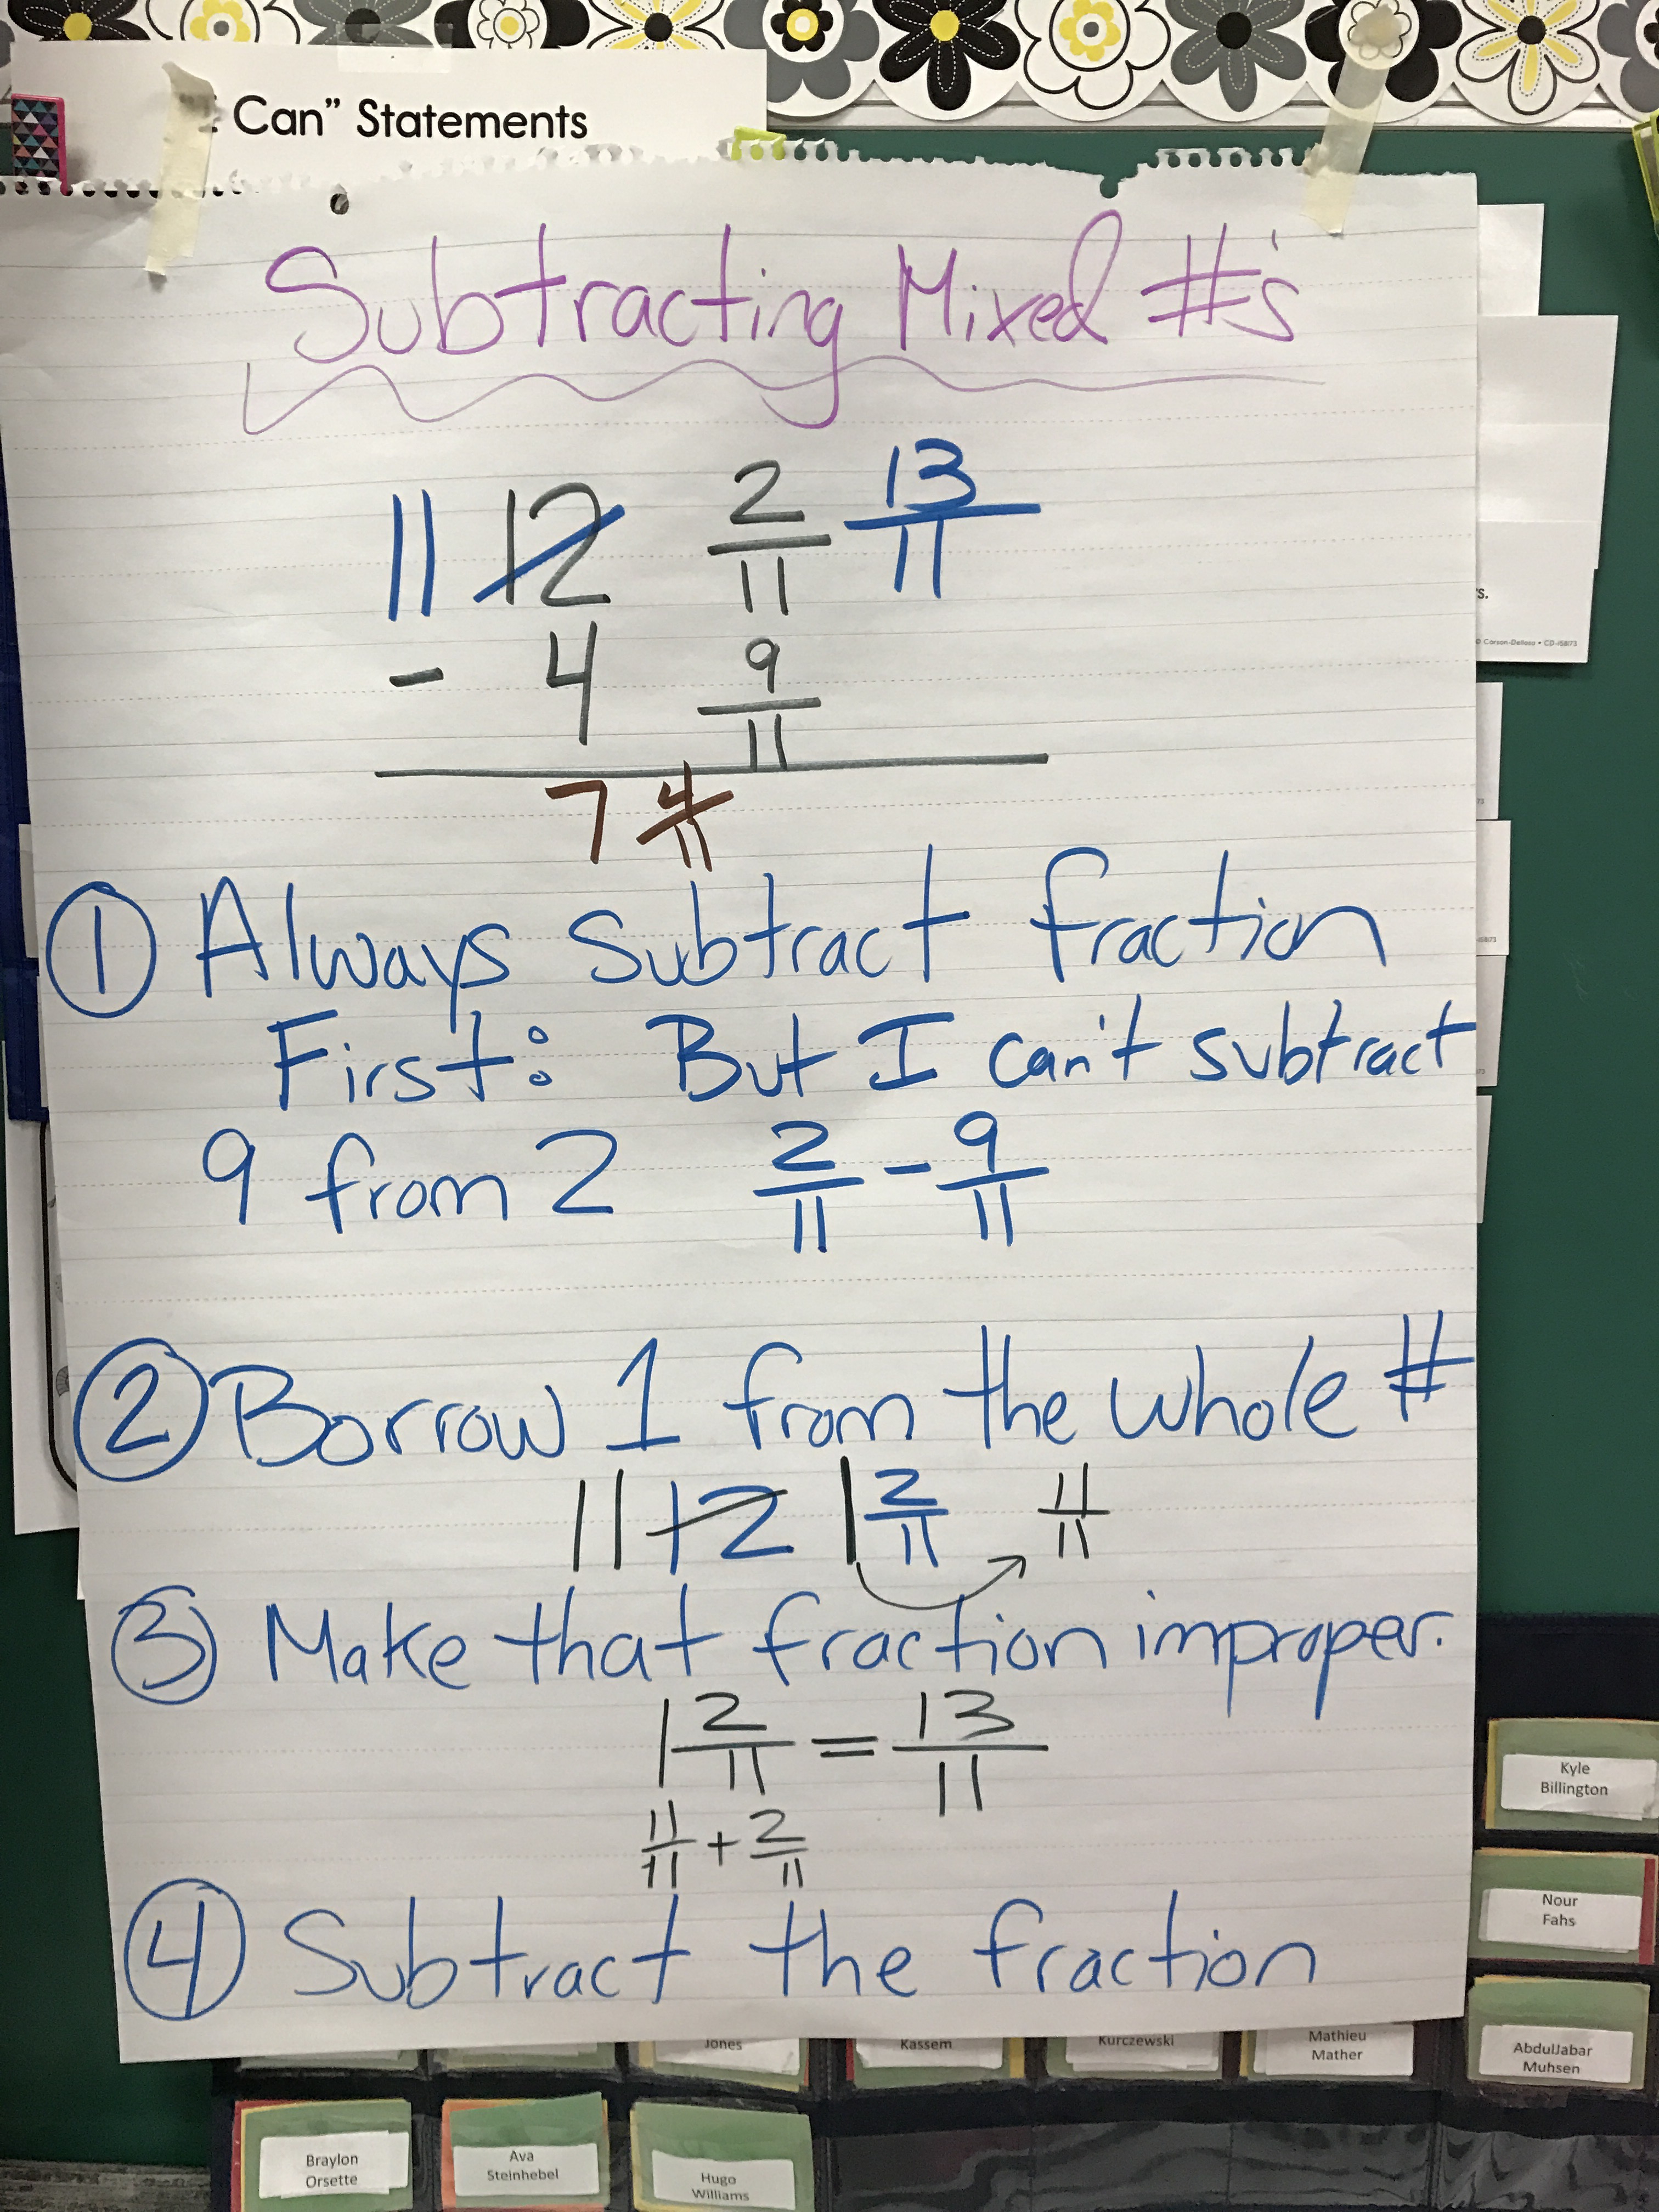 Can" Statements
Subtracting Mixed #'s
11 12 2/11 13/11
- 4 9/11
7 4/11
① Always subtract fraction
First: But I can't subtract
9 from 2 2/11 - 9/11
② Borrow 1 from the whole #
11 12 1 2/11 11/11
③ Make that fraction improper.
1 2/11 = 13/11
11/11 + 2/11
④ Subtract the fraction
s.
© Carson-Dellosa • CD-158173
Kyle
Billington
Nour
Fahs
AbdulJabar
Muhsen
Jones
Kassem
Kurczewski
Mathieu
Mather
Braylon
Orsette
Ava
Steinhebel
Hugo
Williams